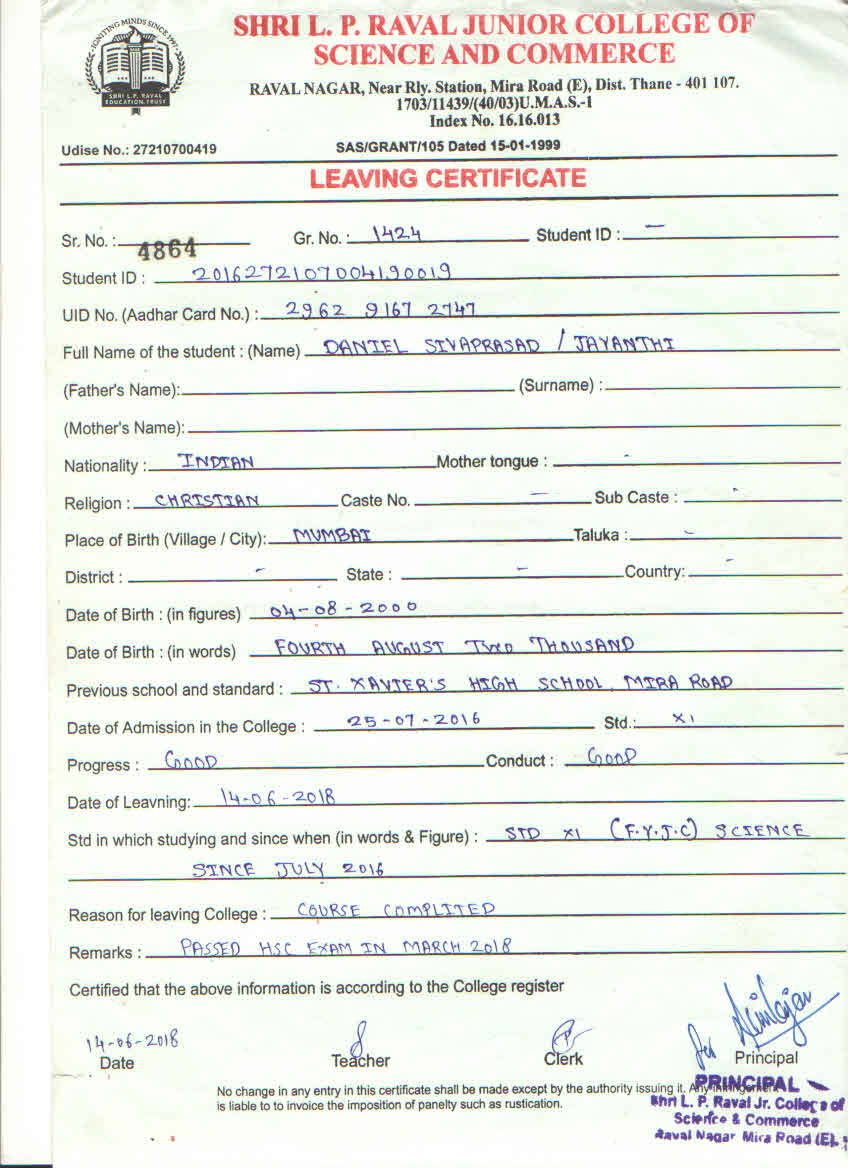 IGNITING MINDS SINCE 1997
SHRI L.P. RAVAL
EDUCATION TRUST
SHRI L. P. RAVAL JUNIOR COLLEGE OF
SCIENCE AND COMMERCE
RAVAL NAGAR, Near Rly. Station, Mira Road (E), Dist. Thane - 401 107.
1703/11439/(40/03)U.M.A.S.-1
Index No. 16.16.013
Udise No.: 27210700419 SAS/GRANT/105 Dated 15-01-1999
LEAVING CERTIFICATE
Sr. No. : 4864 Gr. No. : 1424 Student ID : —
Student ID : 2016272107004190019
UID No. (Aadhar Card No.) : 2962 9167 2747
Full Name of the student : (Name) DANIEL SIVAPRASAD / JAYANTHI
(Father's Name): (Surname) :
(Mother's Name):
Nationality : INDIAN Mother tongue : -
Religion : CHRISTIAN Caste No. — Sub Caste : -
Place of Birth (Village / City): MUMBAI Taluka : -
District : - State : - Country: -
Date of Birth : (in figures) 04-08-2000
Date of Birth : (in words) FOURTH AUGUST TWO THOUSAND
Previous school and standard : ST. XAVIER'S HIGH SCHOOL, MIRA ROAD
Date of Admission in the College : 25-07-2016 Std.: XI
Progress : GOOD Conduct : GOOD
Date of Leavning: 14-06-2018
Std in which studying and since when (in words & Figure) : STD XI (F.Y.J.C) SCIENCE
SINCE JULY 2016
Reason for leaving College : COURSE COMPLITED
Remarks : PASSED HSC EXAM IN MARCH 2018
Certified that the above information is according to the College register
14-06-2018
Date Teacher Clerk Principal
No change in any entry in this certificate shall be made except by the authority issuing it. Any
is liable to to invoice the imposition of panelty such as rustication.
PRINCIPAL
Shri L. P. Raval Jr. College of
Science & Commerce
Raval Nagar Mira Road (E),